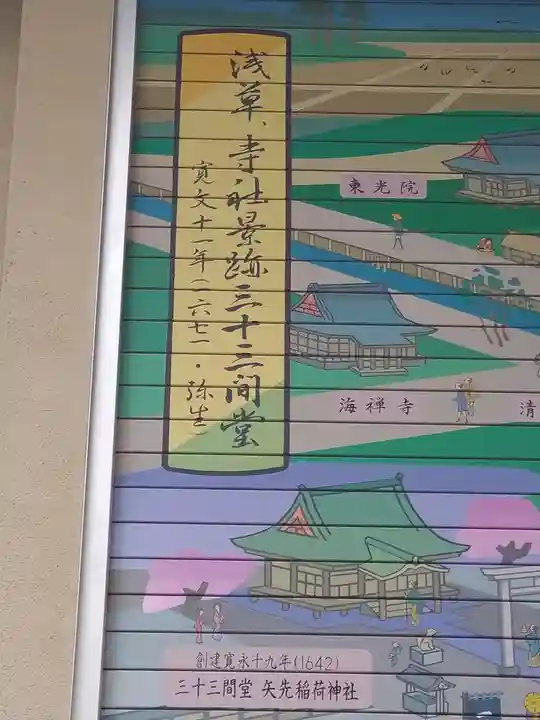 浅草、寺・社景跡三十三間堂
寛文十一年(一六七一・弥生)
東光院
海禅寺
清
創建寛永十九年(1642)
三十三間堂 矢先稲荷神社